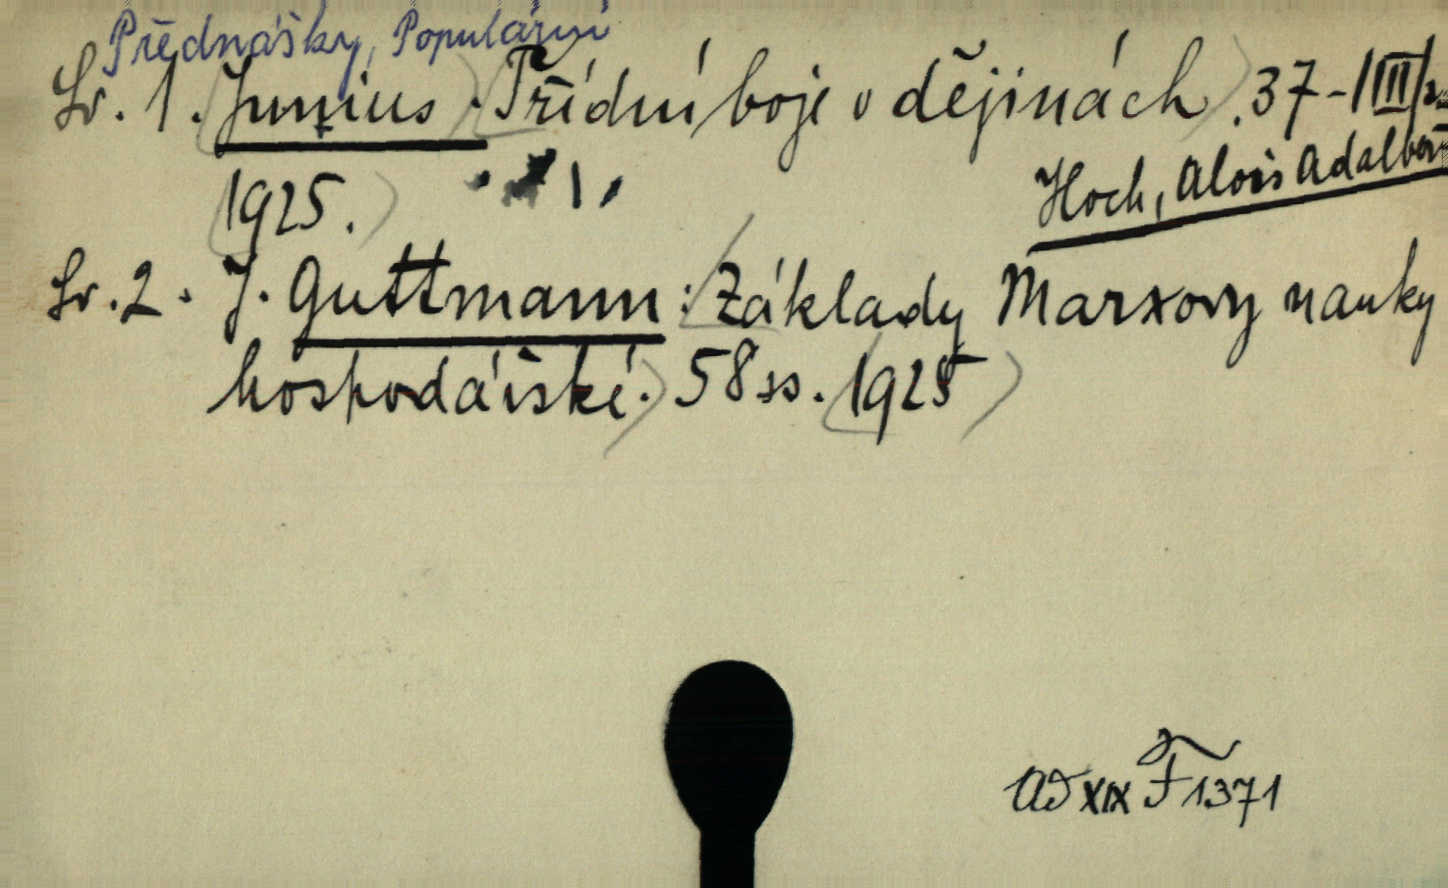 Přednášky, Populární
Sv. 1. Junius. Třídní boje v dějinách. 37-
1925.
Hoch, Alois Adalbert
Sv. 2. J. Guttmann: Základy Marxovy nauky
hospodářské. 58 ss. 1925
ad XIX F 1371